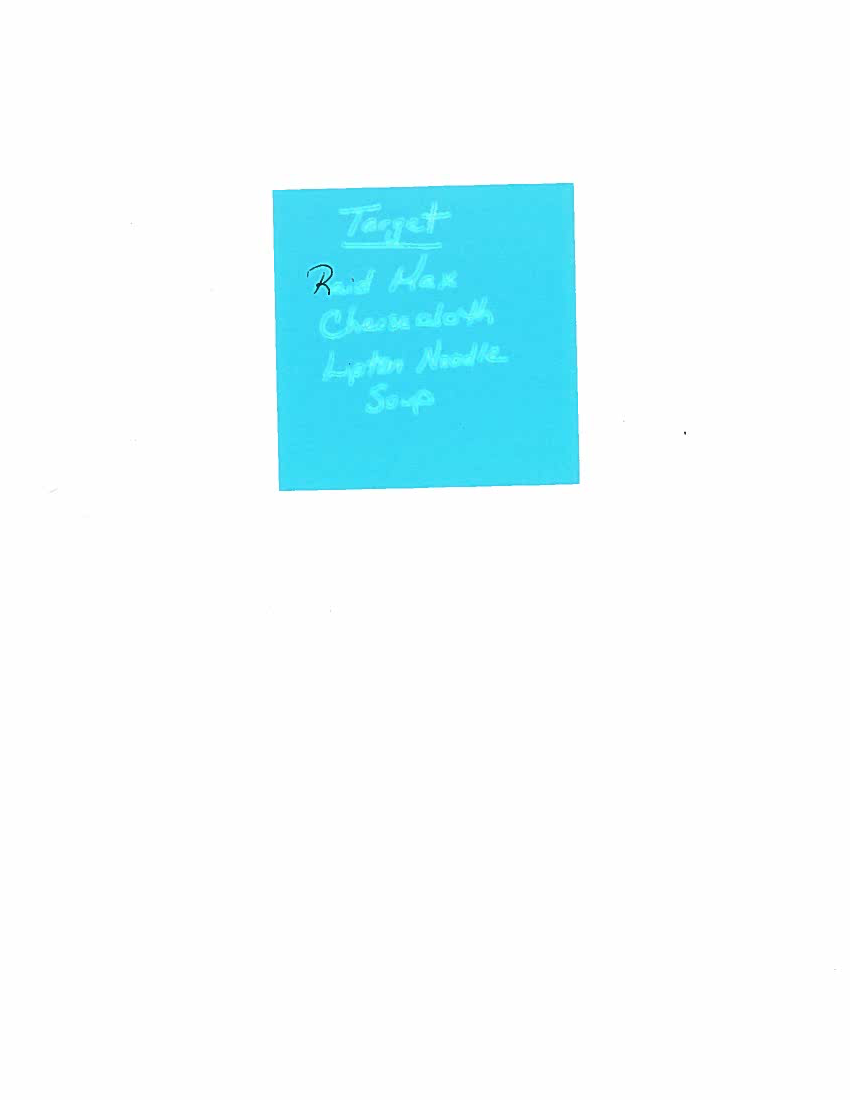 Target
Raid Max
Cheesecloth
Lipton Noodle
Soup